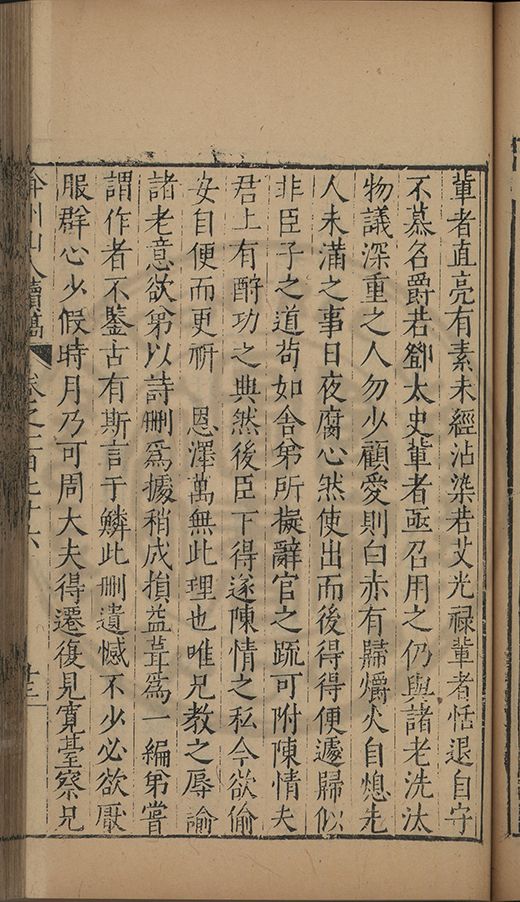 輩者直亮有素未經沾染若艾光祿輩者恬退自守
不慕名爵若鄧太史輩者亟召用之仍與諸老洗汰
物議深重之人勿少顧愛則白亦有歸爝火自熄先
人未滿之事日夜腐心然使出而後得得便遽歸似
非臣子之道苟如舍弟所擬辭官之疏可附陳情夫
君上有酧功之典然後臣下得遂陳情之私今欲偷
安自便而更祈 恩澤萬無此理也唯兄教之辱諭
諸老意欲弟以詩刪爲據稍成損益葺爲一編弟嘗
謂作者不鑒古有斯言于鱗此刪遺憾不少必欲厭
服群心少假時月乃可周大夫得遷復見寬臺察兄
弇州山人續藁 卷之一百七十六 十三